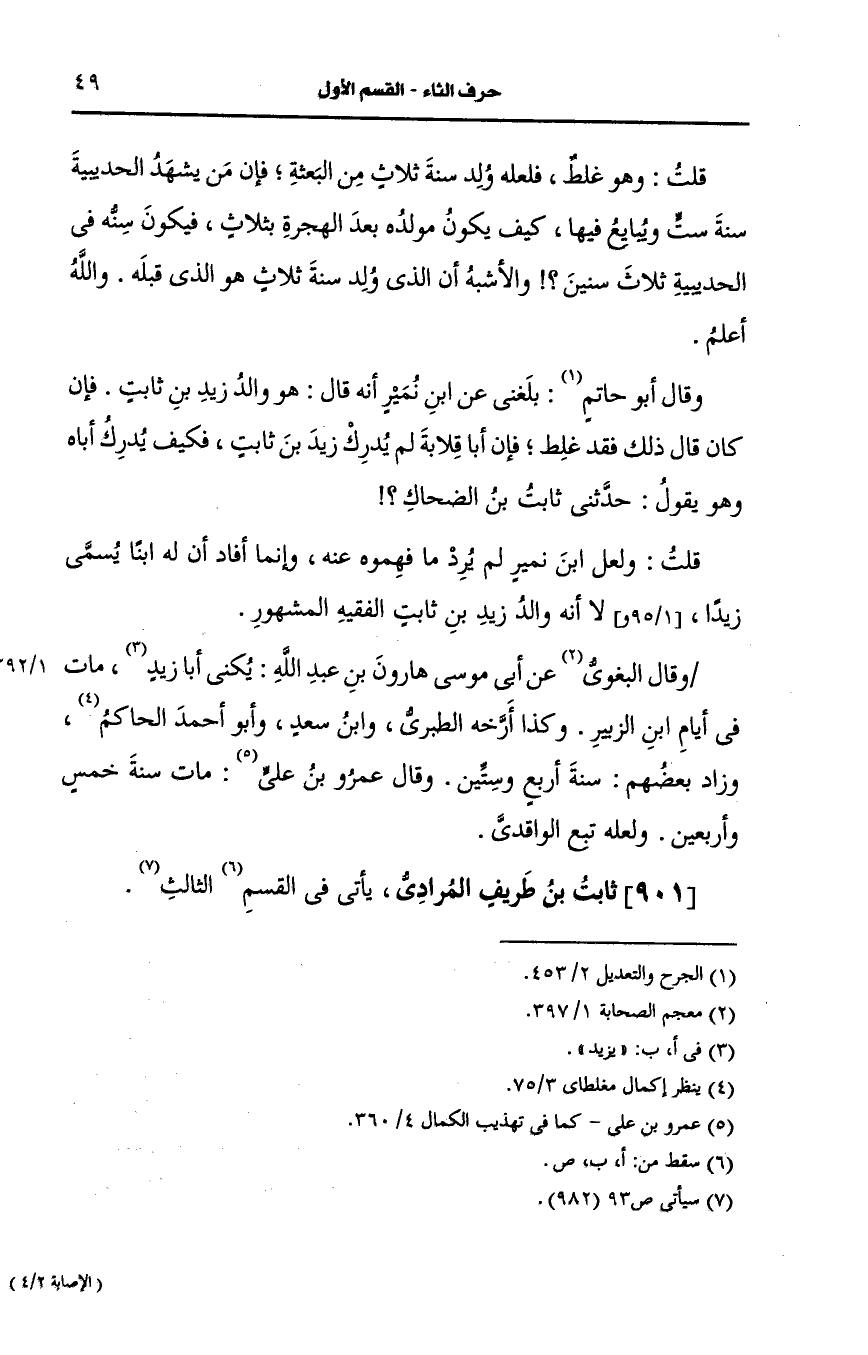 حرف الثاء - القسم الأول ٤٩
قلتُ : وهو غلطٌ ، فلعله وُلِد سنةَ ثلاثٍ مِن البَعثةِ ؛ فإن مَن يشهَدُ الحديبيةَ
سنةَ ستٍّ ويُبايعُ فيها ، كيف يكونُ مولدُه بعدَ الهجرةِ بثلاثٍ ، فيكونَ سِنُّه فى
الحديبيةِ ثلاثَ سنينَ ؟! والأشبهُ أن الذى وُلِد سنةَ ثلاثٍ هو الذى قبلَه . واللَّهُ
أعلمُ .
وقال أبو حاتمٍ(١) : بلَغنى عن ابنِ نُمَيْرٍ أنه قال : هو والدُ زيدِ بنِ ثابتٍ . فإن
كان قال ذلك فقد غلِط ؛ فإن أبا قِلابةَ لم يُدرِكْ زيدَ بنَ ثابتٍ ، فكيف يُدرِكُ أباه
وهو يقولُ : حدَّثنى ثابتُ بنُ الضحاكِ ؟!
قلتُ : ولعل ابنَ نميرٍ لم يُرِدْ ما فهِموه عنه ، وإنما أفاد أن له ابنًا يُسمَّى
زيدًا ، [٩٥/١و] لا أنه والدُ زيدِ بنِ ثابتٍ الفقيهِ المشهورِ .
/وقال البغوىُّ(٢) عن أبى موسى هارونَ بنِ عبدِ اللَّهِ : يُكنى أبا زيدٍ(٣) ، مات ٣٩٢/١
فى أيامِ ابنِ الزبيرِ . وكذا أَرَّخه الطبرىُّ ، وابنُ سعدٍ ، وأبو أحمدَ الحاكمُ(٤) ،
وزاد بعضُهم : سنةَ أربعٍ وسِتِّين . وقال عمرُو بنُ علىٍّ(٥) : مات سنةَ خمسٍ
وأربعين . ولعله تبِع الواقدىَّ .
[٩٠١] ثابتُ بنُ طَريفٍ المُرادِىُّ ، يأتى فى القسمِ(٦) الثالثِ(٧) .
(١) الجرح والتعديل ٤٥٣/٢.
(٢) معجم الصحابة ٣٩٧/١.
(٣) فى أ، ب: «يزيد» .
(٤) ينظر إكمال مغلطاى ٧٥/٣.
(٥) عمرو بن على - كما فى تهذيب الكمال ٣٦٠/٤.
(٦) سقط من: أ، ب، ص.
(٧) سيأتى ص٩٣ (٩٨٢).
(الإصابة ٤/٢)